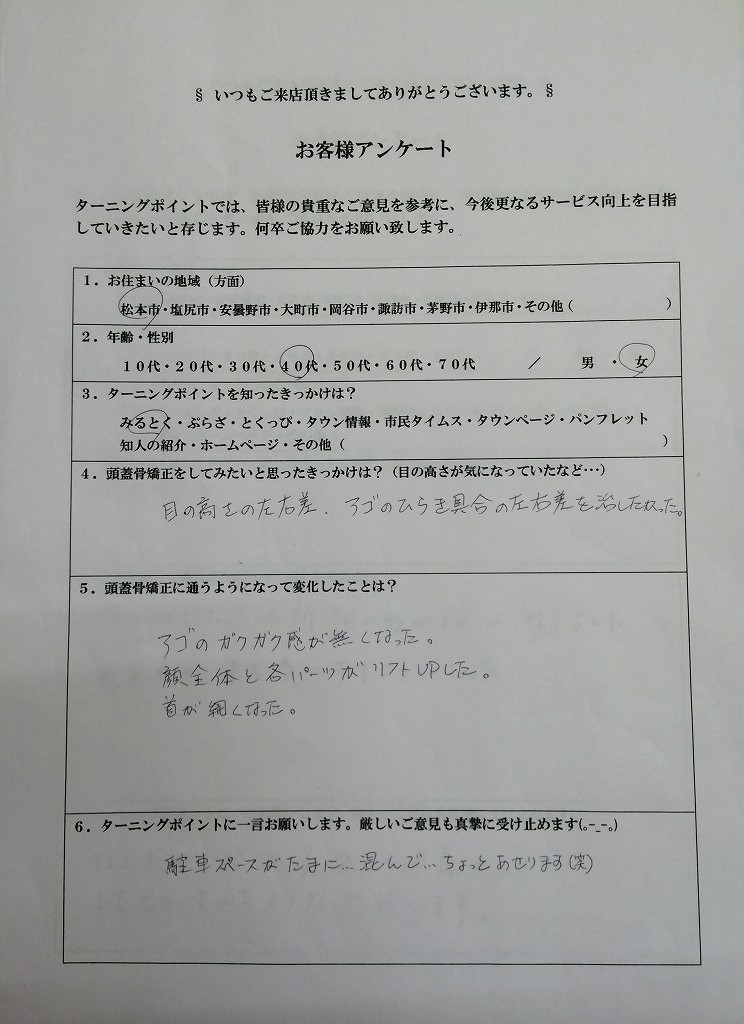 § いつもご来店頂きましてありがとうございます。§
お客様アンケート
ターニングポイントでは、皆様の貴重なご意見を参考に、今後更なるサービス向上を目指
していきたいと存じます。何卒ご協力をお願い致します。
1．お住まいの地域（方面）
松本市・塩尻市・安曇野市・大町市・岡谷市・諏訪市・茅野市・伊那市・その他（　　　　　　）
2．年齢・性別
10代・20代・30代・40代・50代・60代・70代　　／　　男 ・ 女
3．ターニングポイントを知ったきっかけは？
みるとく・ぷらざ・とくっぴ・タウン情報・市民タイムス・タウンページ・パンフレット
知人の紹介・ホームページ・その他（　　　　　　）
4．頭蓋骨矯正をしてみたいと思ったきっかけは？（目の高さが気になっていたなど…）
目の高さの左右差、アゴのひらき具合の左右差を治したかった。
5．頭蓋骨矯正に通うようになって変化したことは？
アゴのガクガク感が無くなった。
顔全体と各パーツがリフトUPした。
首が細くなった。
6．ターニングポイントに一言お願いします。厳しいご意見も真摯に受け止めます(｡-_-｡)
駐車スペースがたまに…混んで…ちょっとあせります(笑)